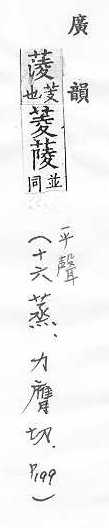 廣韻
蔆芰也菱䔖並同
平聲
(十六蒸、力膺切. P.199)